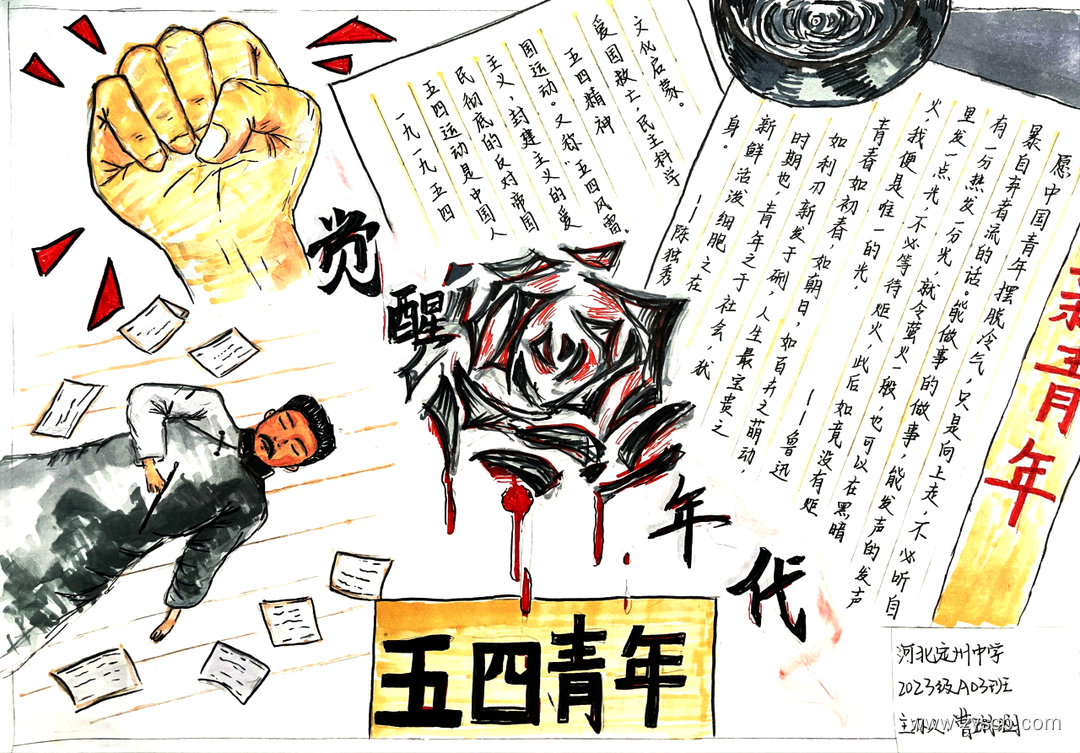 觉醒年代
一九一九五四
五四运动是中国人
民彻底的反对帝国
主义,封建主义的爱
国运动。又称“五四风雷.
五四精神
爱国救亡,民主科学
文化启蒙。
愿中国青年摆脱冷气,只是向上走,不必听自
暴自弃者流的话。能做事的做事,能发声的发声
有一分热发一分光,就令萤火一般,也可以在黑暗
里发一点光,不必等待炬火,此后如竟没有炬
火我便是唯一的光.
——鲁迅
青春如初春,如朝日,如百卉之萌动,
如利刃新发于硎,人生最宝贵之
时期也,青年之于社会,犹
新鲜活泼细胞之在
身。
——陈独秀
新青年
五四青年
河北定州中学
2023级A03班
主办人:曹